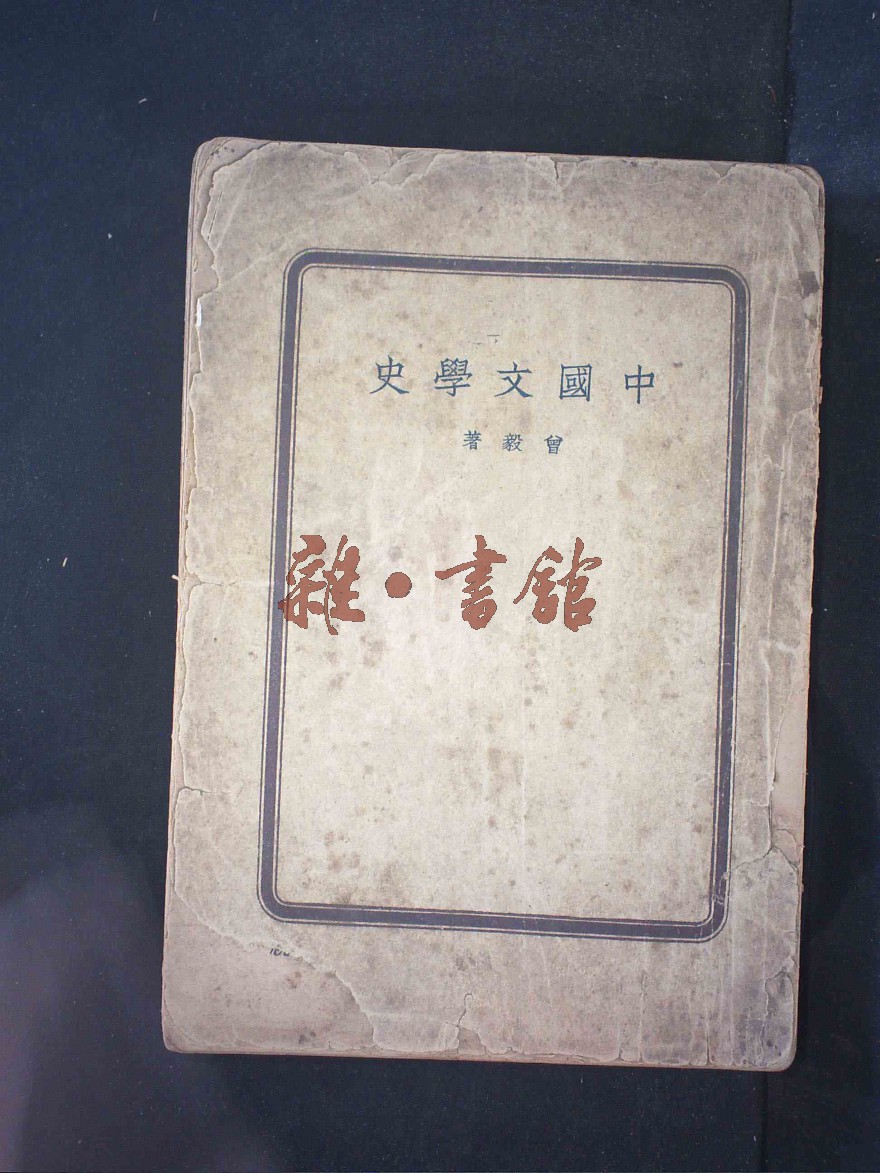 中國文學史
曾毅著
雜·書館